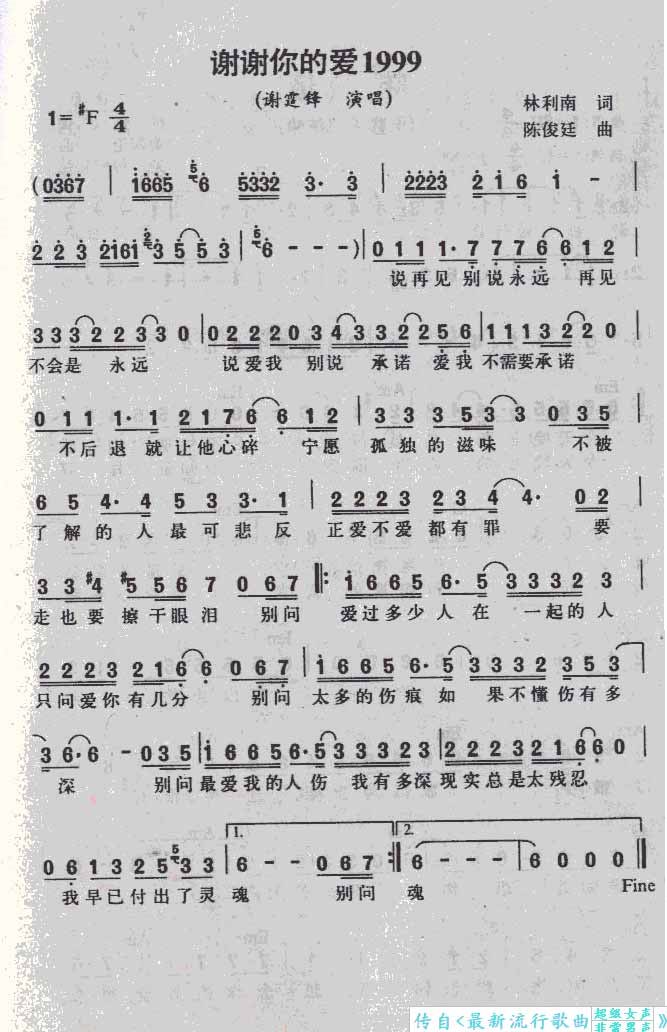 谢谢你的爱1999
(谢霆锋 演唱)
1=#F 4/4
林利南 词
陈俊廷 曲
(0367 1665 5 6 5332 3· 3 2223 2 1 6 1 -
2 2 3 2161 2 3 5 5 3 5 6 - - -) 0 1 1 1· 7 7 7 6 6 1 2
说再见 别说永远 再见
3 3 3 3 2 2 3 3 0 0 2 2 2 0 3 4 3 3 2 2 5 6 1 1 1 3 2 2 0
不会是 永远 说爱我 别说 承诺 爱我 不需要承诺
0 1 1 1· 1 2 1 7 6 6 1 2 3 3 3 5 3 3 0 3 5
不后退就让他心碎 宁愿 孤独的滋味 不被
6 5 4· 4 5 3 3· 1 2 2 2 3 2 3 4 4· 0 2
了解的人最可悲反 正爱不爱都有罪 要
3 3 #4 5 5 6 7 0 6 7 1 6 6 5 6· 5 3 3 3 2 3
走也要 擦干眼泪 别问 爱过多少人在 一起的人
2 2 2 3 2 1 6 6 0 6 7 1 6 6 5 6· 5 3 3 3 2 3 5 3
只问爱你有几分 别问 太多的伤痕如 果不懂伤有多
3 6· 6 - 0 3 5 1 6 6 5 6· 5 3 3 3 2 3 2 2 2 3 2 1 6 6 0
深 别问最爱我的人伤 我有多深现实总是太残忍
1. 2.
0 6 1 3 2 5 5 3 3 6 - - 0 6 7 6 - - - 6 0 0 0
我早已付出了灵 魂 别问 魂 Fine
传自<最新流行歌曲 超级女声 非常男声》